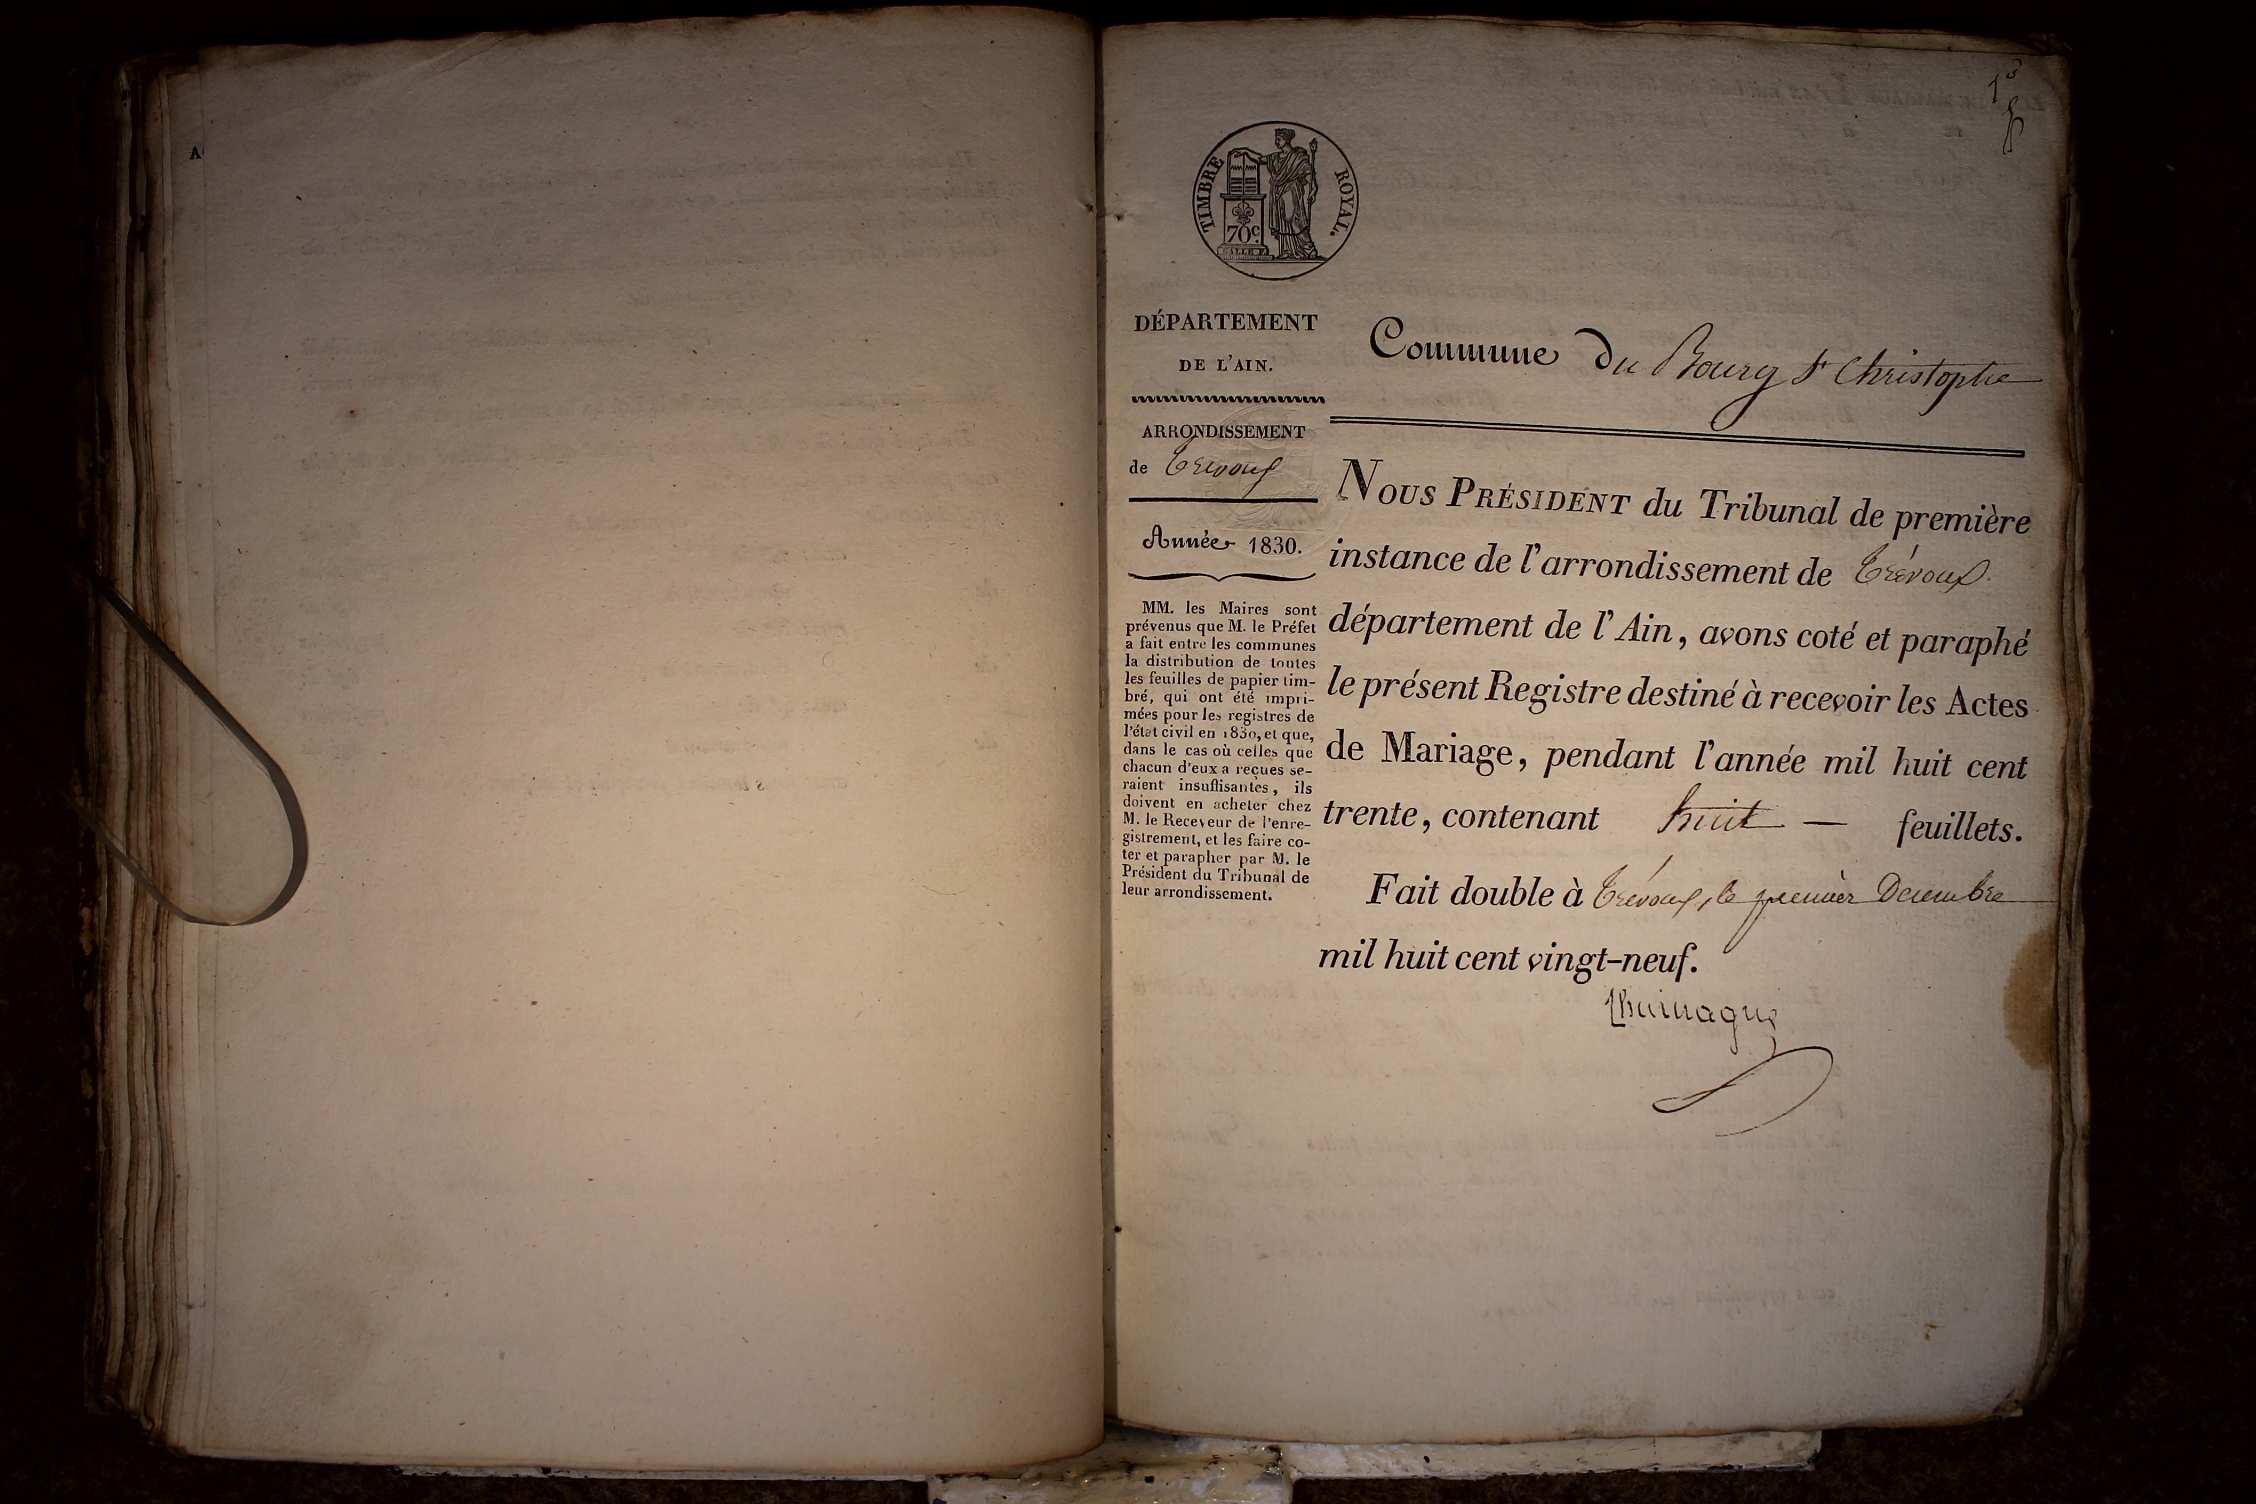 A
1
TIMBRE ROYAL.
70c.
DÉPARTEMENT
DE L'AIN.
ARRONDISSEMENT
de Trévoux
Année 1830.
MM. les Maires sont
prévenus que M. le Préfet
a fait entre les communes
la distribution de toutes
les feuilles de papier tim-
bré, qui ont été impri-
mées pour les registres de
l'état civil en 1830, et que,
dans le cas où celles que
chacun d'eux a reçues se-
raient insuffisantes, ils
doivent en acheter chez
M. le Receveur de l'enre-
gistrement, et les faire co-
ter et parapher par M. le
Président du Tribunal de
leur arrondissement.
Commune du Bourg St Christophe
NOUS PRÉSIDENT du Tribunal de première
instance de l'arrondissement de Trévoux
département de l'Ain, avons coté et paraphé
le présent Registre destiné à recevoir les Actes
de Mariage, pendant l'année mil huit cent
trente, contenant huit — feuillets.
Fait double à Trévoux, le premier Decembre
mil huit cent vingt-neuf.